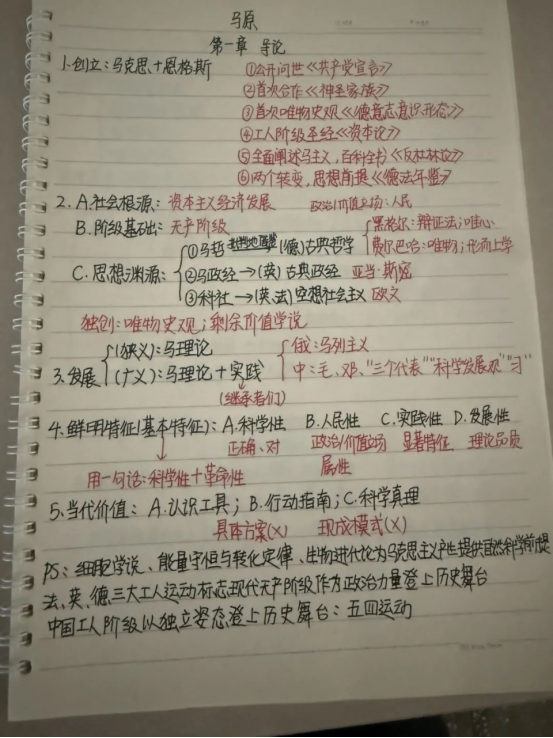 马原
第一章 导论
1.创立：马克思+恩格斯 ①公开问世《共产党宣言》
②首次合作《神圣家族》
③首次唯物史观《德意志意识形态》
④工人阶级圣经《资本论》
⑤全面阐述马主义，百科全书《反杜林论》
⑥两个转变，思想前提《德法年鉴》
2. A.社会根源：资本主义经济发展 政治/价值立场：人民
B.阶级基础：无产阶级
黑格尔：辩证法；唯心
①马哲 批判地继承 (德)古典哲学 费尔巴哈：唯物；形而上学
C.思想渊源： ②马政经→(英)古典政经 亚当·斯密
③科社→(英、法)空想社会主义 欧文
独创：唯物史观；剩余价值学说
(狭义)：马理论 俄：马列主义
3.发展 (广义)：马理论+实践 中：毛、邓、“三个代表”“科学发展观”“习”
(继承者们)
4.鲜明特征(基本特征)：A.科学性 B.人民性 C.实践性 D.发展性
正确、对 政治/价值立场 显著特征 理论品质
用一句话：科学性+革命性 属性
5.当代价值：A.认识工具；B.行动指南；C.科学真理
具体方案(×) 现成模式(×)
PS：细胞学说、能量守恒与转化定律、生物进化论为马克思主义产生提供自然科学前提
法、英、德三大工人运动标志现代无产阶级作为政治力量登上历史舞台
中国工人阶级以独立姿态登上历史舞台：五四运动